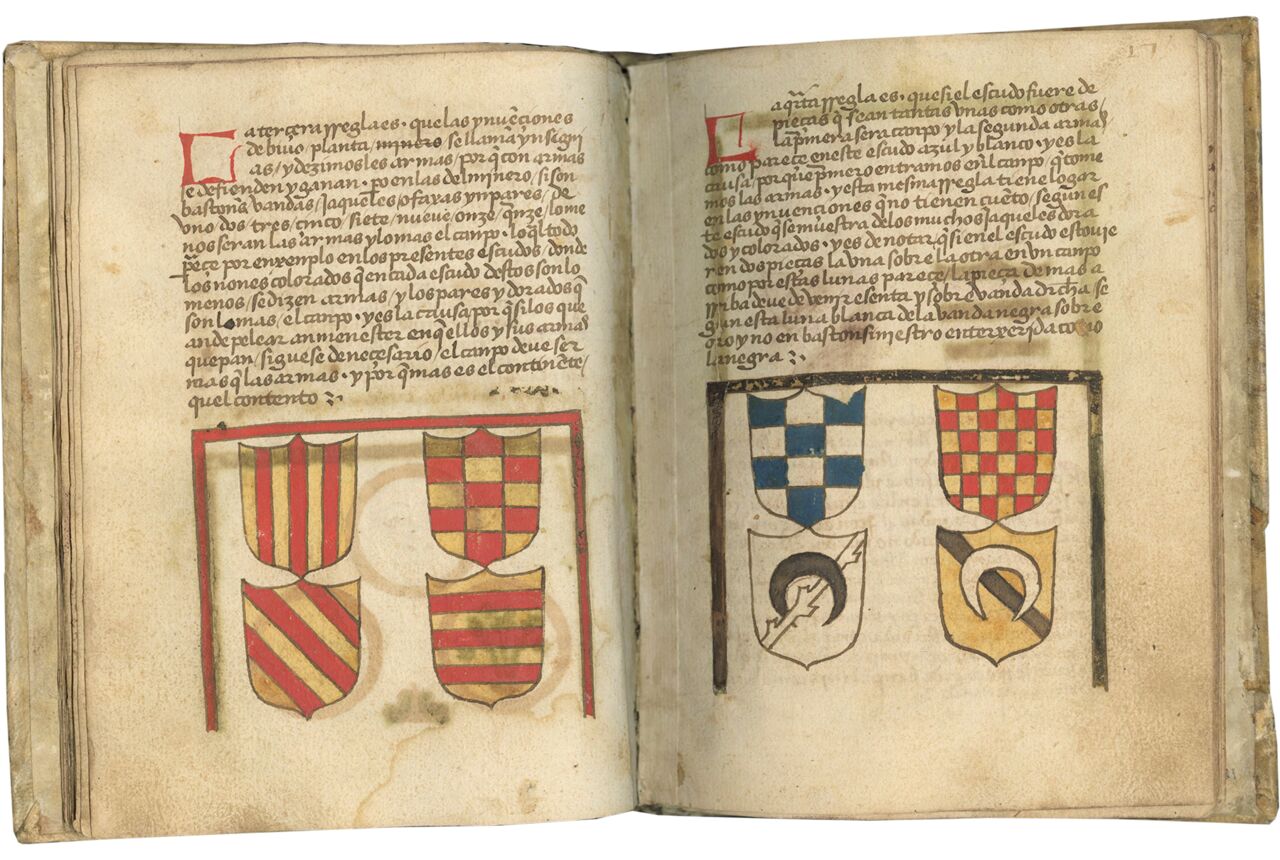 La terçera rregla es. que las ynvẽciones
de bivo, planta, minero, se llamã ynsegni
as, y dezimosles armas, por q̃ con armas
se defienden y ganan. po en las del minero, si son
bastones vandas, Jaqueles, o fayas ynpares, de
vno dos, tres, cinco, siete, nueve, onze, q̃nze, lo me
nos seran las armas y lo mas el canpo. lo q̃l todo
pẽce por enxenplo en los presentes escudos, donde
los nones colorados q̃ en cada escudo destos son lo
menos, se dizen armas, y los pares y dorados q̃
son lo mas, el canpo. y es la causa, por q̃ si los que
an de pelear an menester en q̃ ellos y sus armas
quepan, siguese de necesario, el canpo deve ser
mas q̃ las armas. y por q̃ mas es el continẽte,
quel contento
La q̃rta rregla es. que si el escudo fuere de
pieças q̃ sean tantas vnas como otras,
la p̃mera sera canpo y la segunda armas
como pareçe en este escudo azul y blanco. y es la
causa, por que p̃mero entramos en el canpo, q̃ tome
mos las armas. y esta mesma rregla tiene logar
en las ynvenciones q̃ no tienen cuẽto, segun es
te escudo q̃ se muestra de los muchos Jaqueles dora
dos y colorados. y es de notar, q̃ si en el escudo estovie
ren dos pieças la vna sobre la otra en vn canpo
como por estas lunas pareçe, la pieça de mas a
rriba deve de venir esenta y sobre vanda drcha, se
gun esta luna blanca de la vanda negra sobre
oro y no en baston sinestro entrexerida como
la negra